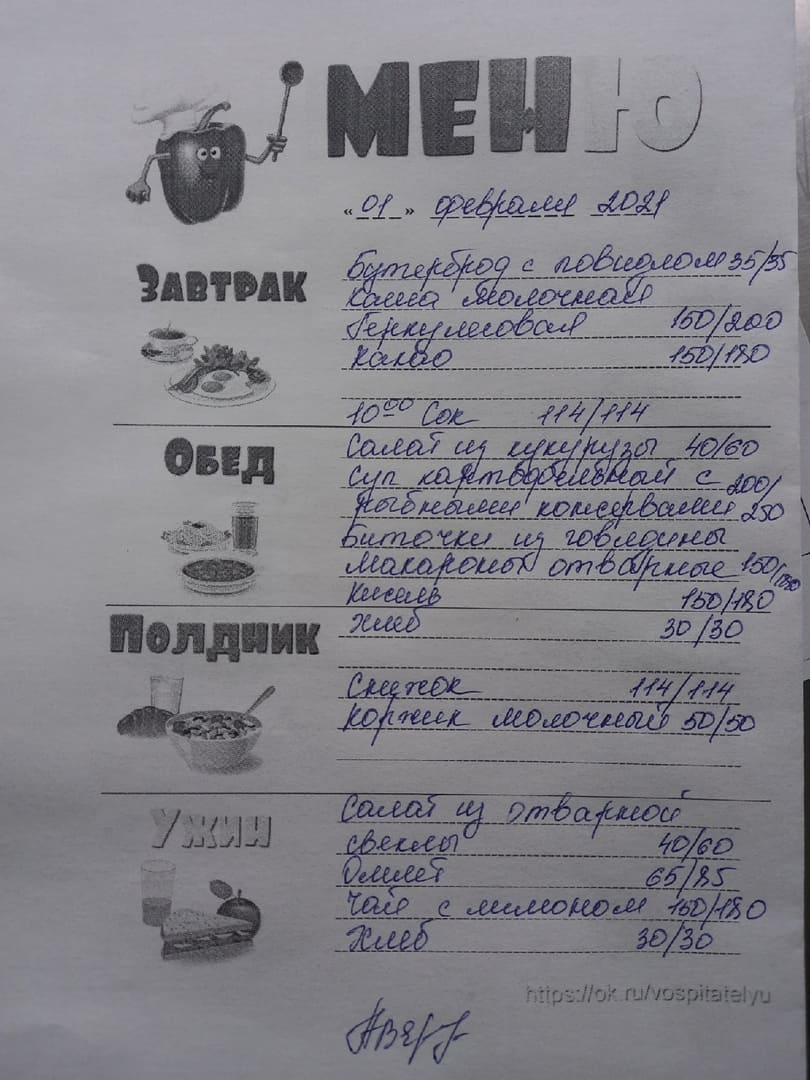 МЕНЮ
«01» февраля 2021
ЗАВТРАК
Бутерброд с повидлом 35/35
Каша молочная
Геркулесовая 150/200
Какао 150/180
10 00 Сок 114/114
ОБЕД
Салат из кукурузы 40/60
Суп картофельный с 200/
рыбными консервами 250
Биточки из говядины
Макароны отварные 150/180
Кисель 150/180
Хлеб 30/30
ПОЛДНИК
Снежок 114/114
Коржик молочный 50/50
УЖИН
Салат из отварной
свеклы 40/60
Омлет 65/85
Чай с лимоном 150/180
Хлеб 30/30
https://ok.ru/vospitatelyu